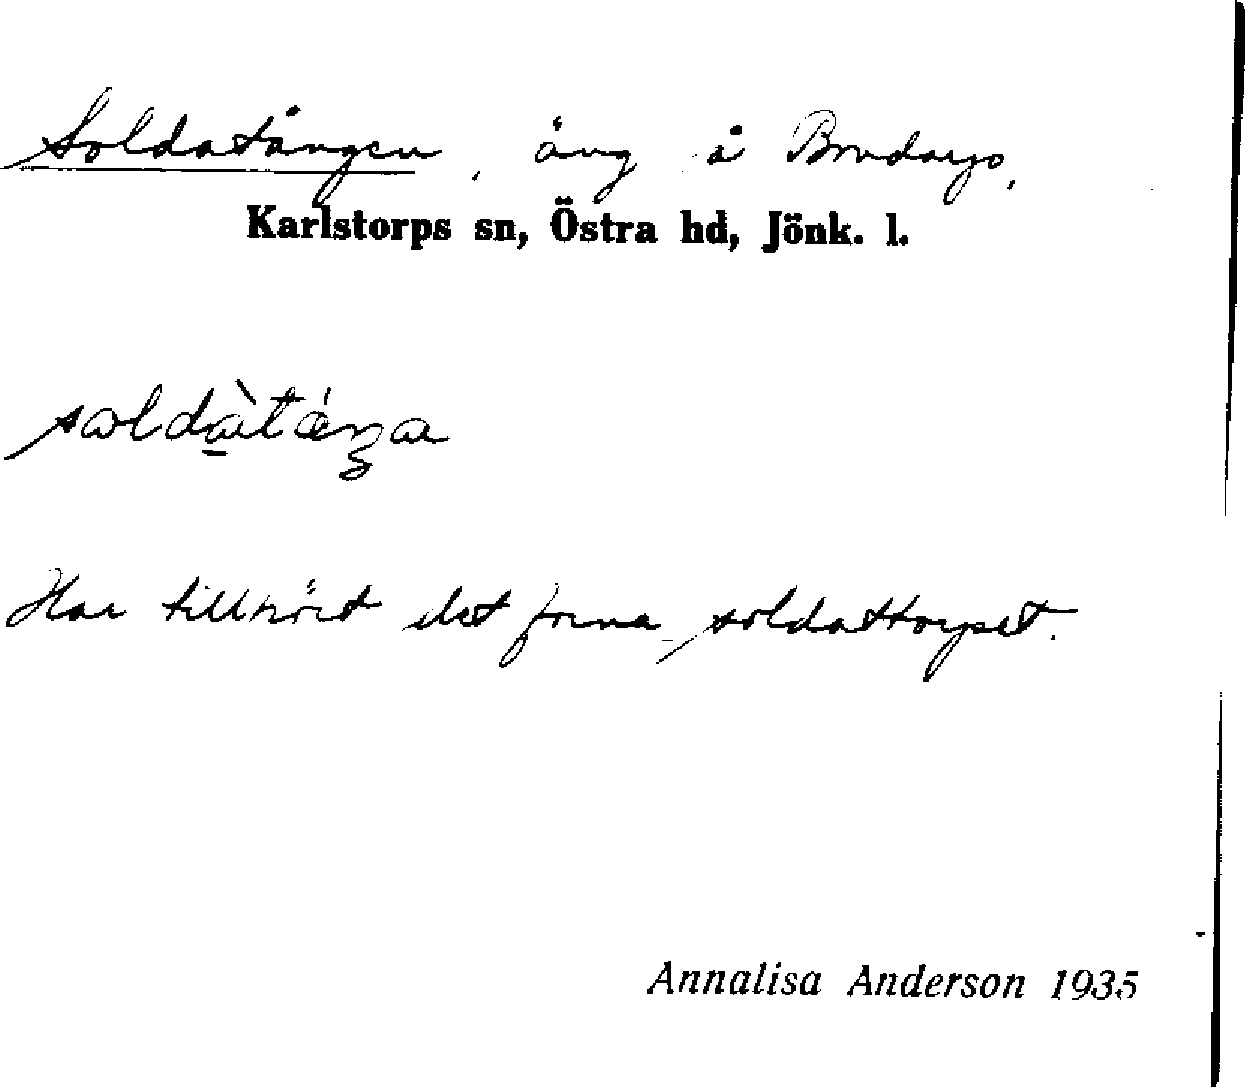 Soldatängen, äng å
Karlstorps sn, Östra hd, Jönk. l.
Har tillhört det forna soldattorpet.
Annalisa Anderson 1935